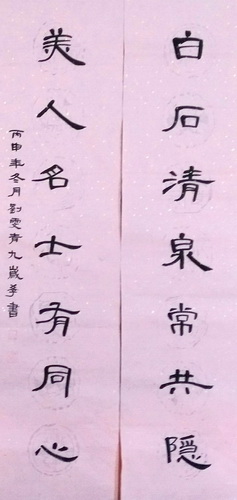 白石清泉常共隐
美人名士有同心
丙申年冬月刘雯青九岁华书